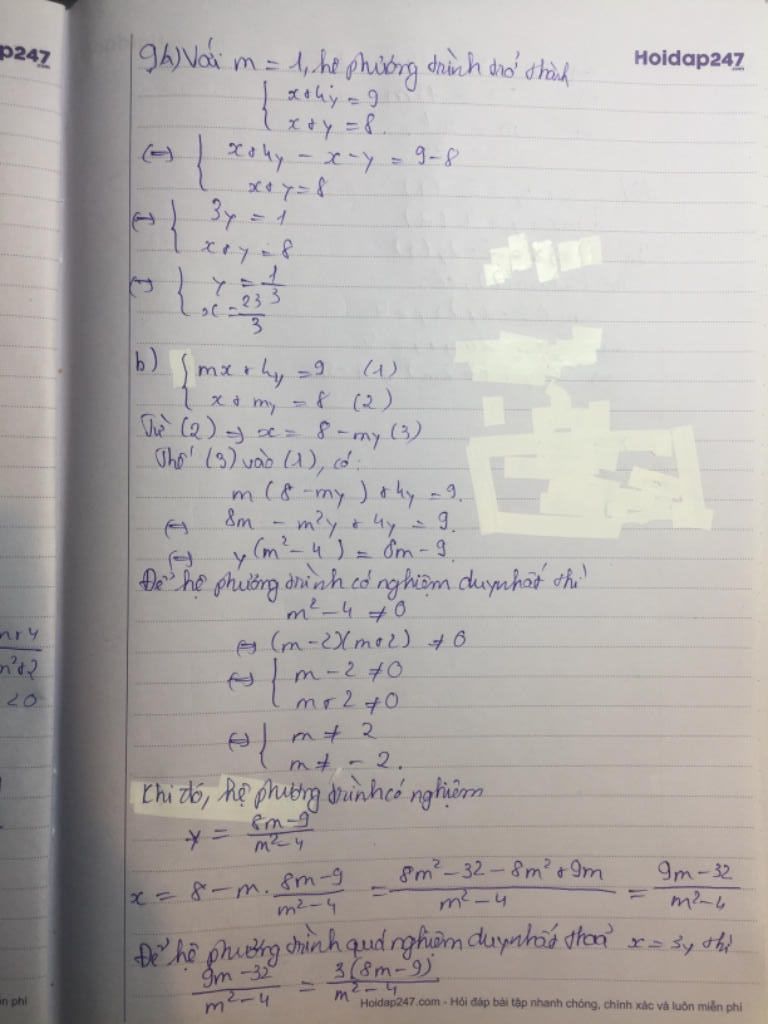 p247
.com
Hoidap247
.com
9a) Với m = 1, hệ phương trình trở thành
{ x+4y = 9
x+y = 8.
(=) { x+4y - x - y = 9-8
x+y = 8
(=) { 3y = 1
x+y = 8
(=) { y = 1/3
x = 23/3
b) { mx + 4y = 9 (1)
x + my = 8 (2)
Từ (2) => x = 8 - my (3)
Thế (3) vào (1), có:
m(8 - my) + 4y = 9.
(=) 8m - m²y + 4y = 9.
(=) y(m² - 4) = 8m - 9.
Để hệ phương trình có nghiệm duy nhất thì
m² - 4 ≠ 0
(=) (m-2)(m+2) ≠ 0
(=) { m - 2 ≠ 0
m + 2 ≠ 0
(=) { m ≠ 2
m ≠ - 2.
Khi đó, hệ phương trình có nghiệm
y = (8m-9)/(m²-4)
x = 8 - m . (8m-9)/(m²-4) = (8m² - 32 - 8m² + 9m)/(m²-4) = (9m-32)/(m²-4)
Để hệ phương trình có nghiệm duy nhất thoả x = 3y thì
(9m-32)/(m²-4) = 3(8m-9)/(m²-4)
m+4
m²+2
<0
ễn phí
Hoidap247.com - Hỏi đáp bài tập nhanh chóng, chính xác và luôn miễn phí